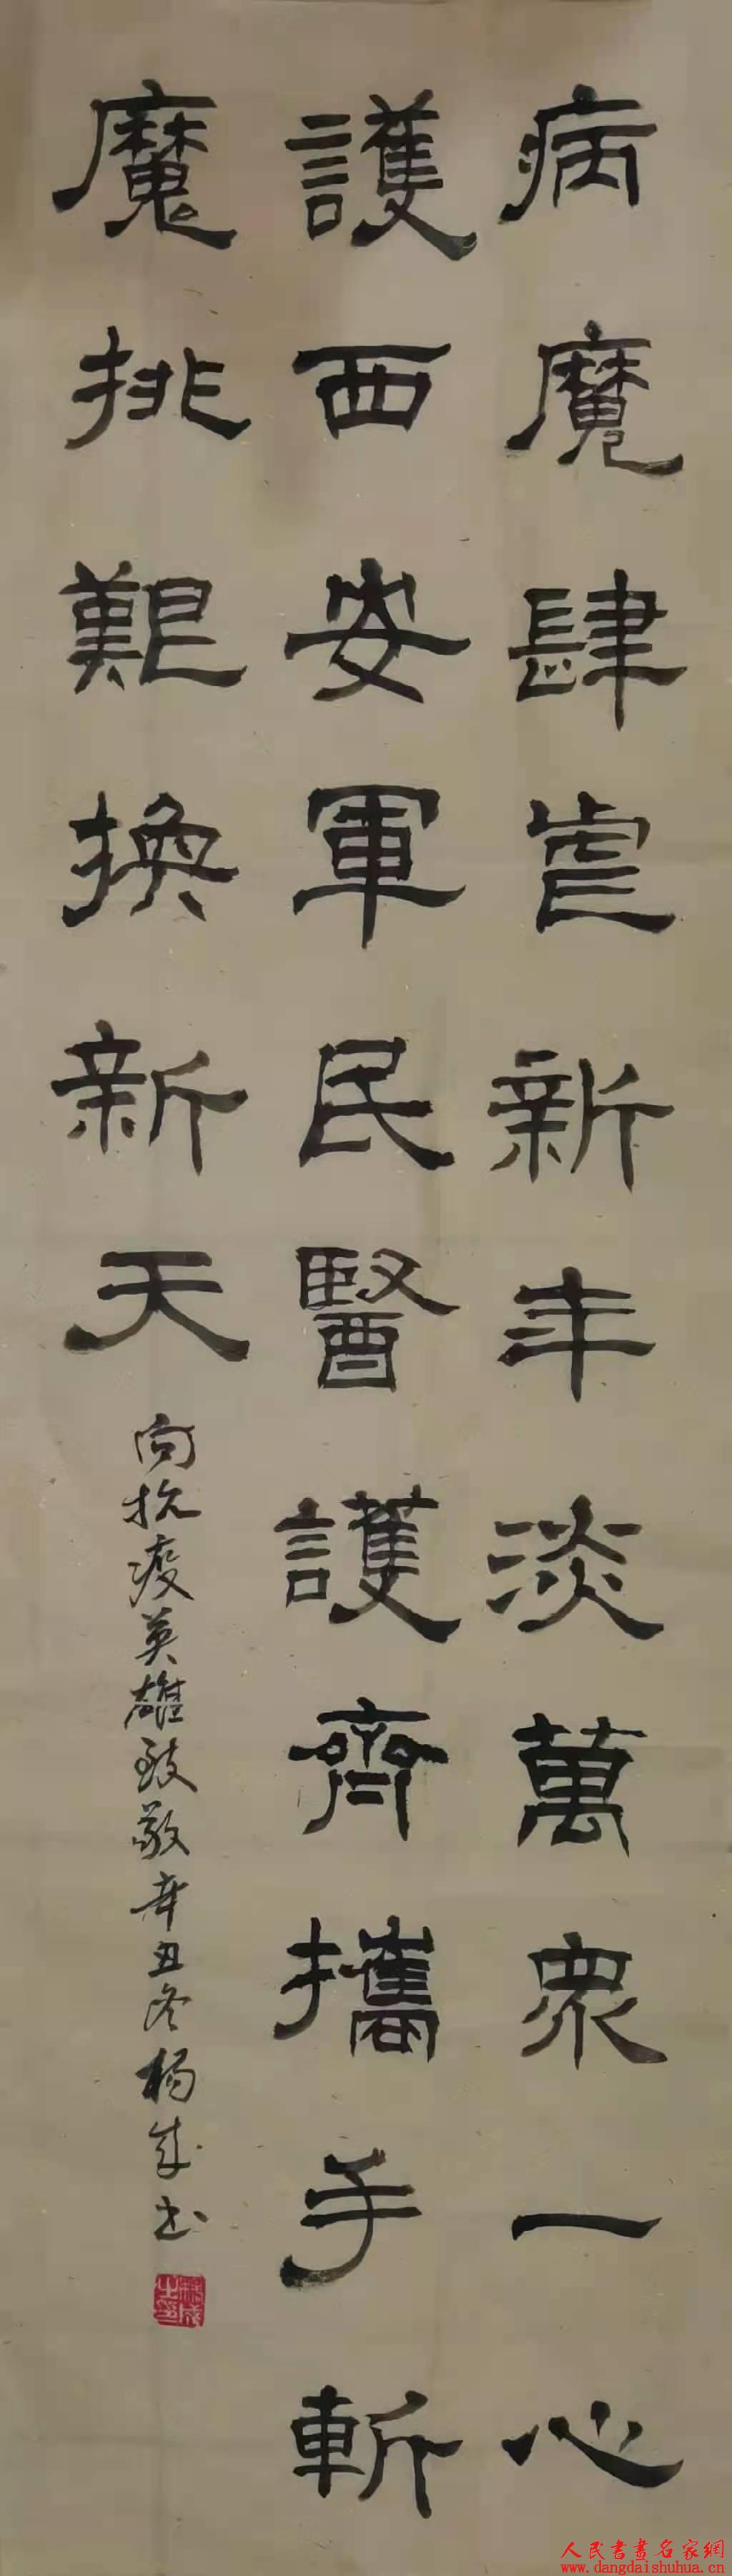 病魔肆虐新年淡萬衆一心
護西安軍民醫護齊攜手斬
魔排艱換新天
向抗疫英雄致敬辛丑冬楊成书
楊成之印
人民書畫名家網
www.dangdaishuhua.cn